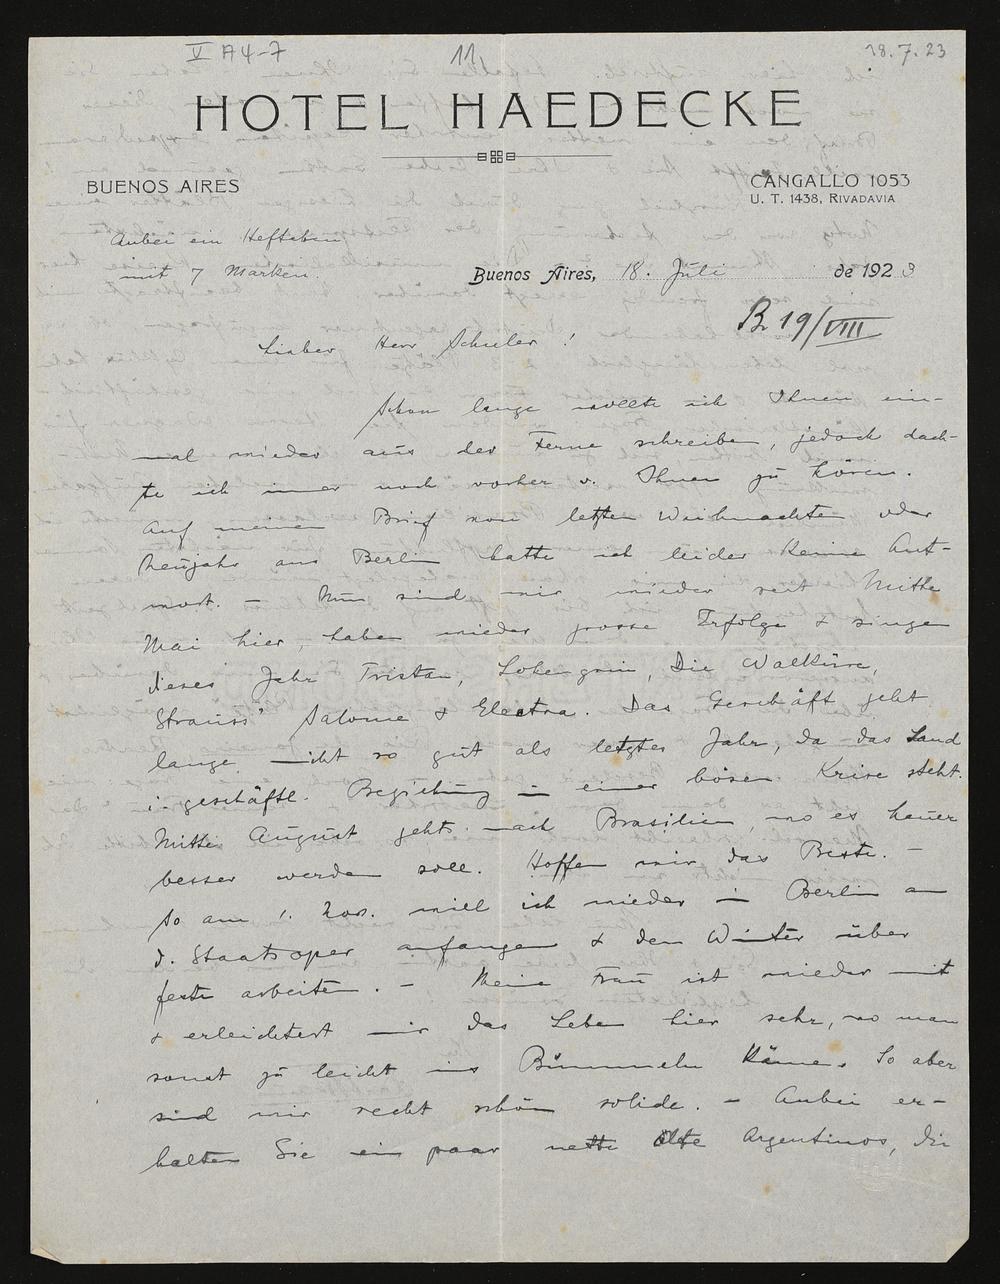 V A4-7 11 18.7.23
HOTEL HAEDECKE
BUENOS AIRES
CANGALLO 1053
U. T. 1438, RIVADAVIA
Anbei ein Heftchen
mit 7 Marken.
Buenos Aires, 18. Juli de 1923
B 19/VIII
Lieber Herr Schuler!
Schon lange wollte ich Ihnen ein-
mal wieder aus der Ferne schreiben, jedoch dach-
te ich immer noch vorher v. Ihnen zu hören.
Auf meinen Brief von letzten Weihnachten oder
Neujahr aus Berlin hatte ich leider keine Ant-
wort. – Nun sind wir wieder seit Mitte
Mai hier, haben wieder grosse Erfolge & singen
dieses Jahr Tristan, Lohengrin, Die Walküre,
Strauss' Salome & Electra. Das Geschäft geht
lange nicht so gut als letztes Jahr, da das Land
in geschäftl. Beziehung in einer bösen Krise steht.
Mitte August gehts nach Brasilien, wo es heuer
besser werden soll. Hoffen wir das Beste. –
So am 1. Nov. will ich wieder in Berlin an
d. Staatsoper anfangen & den Winter über
feste arbeiten. – Meine Frau ist wieder mit
& erleichtert mir das Leben hier sehr, wo man
sonst zu leicht ins Bümmeln käme. So aber
sind wir recht schön solide. – Anbei er-
halten Sie ein paar nette alte Argentinos, die